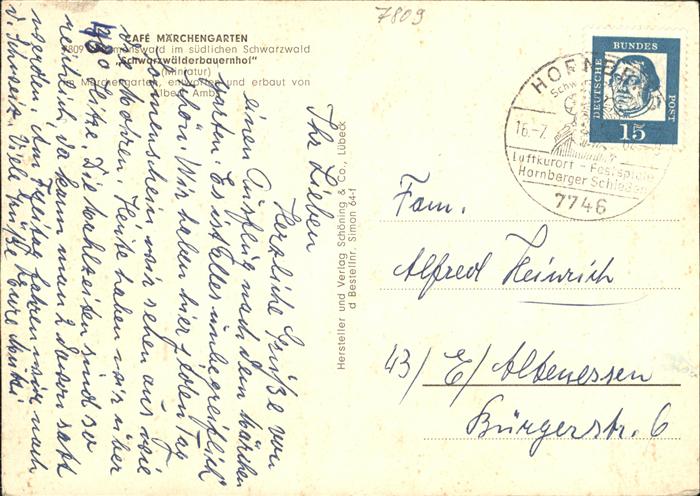 7809
CAFÉ MÄRCHENGARTEN
7809 monswald im südlichen Schwarzwald
„Schwarzwälderbauernhof"
(Miniatur)
Märchengarten, entworfen und erbaut von
Albert Amb
Hersteller und Verlag Schöning & Co., Lübeck
d Bestellnr. Simon 64-1
DEUTSCHE BUNDES POST
15
HORNBER
Schw
16.-7.
Luftkurort - Festspiele
Hornberger Schießen
7746
Ihr Lieben
Herzliche Grüße von
einen Ausflug nach dem Märchen
garten. Es ist alles unbegreiflich
schön. Wir haben hier jeden Tag
Sonnenschein wir sehen aus wie
die Mohren. Heute haben wir über
30° Hitze Die Mahlzeiten sind so
reichlich, da kann man 2 davon satt
werden. Am Freitag fahren wir nach
d. Schweiz. Viele Grüße Eure
Fam.
Alfred Heinrich
43/ E/ Altenessen
Bürgerstr. 6